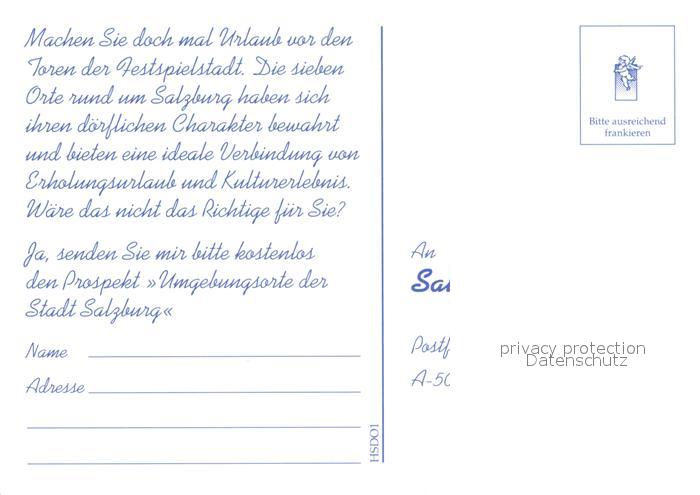 Machen Sie doch mal Urlaub vor den
Toren der Festspielstadt. Die sieben
Orte rund um Salzburg haben sich
ihren dörflichen Charakter bewahrt
und bieten eine ideale Verbindung von
Erholungsurlaub und Kulturerlebnis.
Wäre das nicht das Richtige für Sie?
Ja, senden Sie mir bitte kostenlos
den Prospekt »Umgebungsorte der
Stadt Salzburg«
Name
Adresse
HSDO1
Bitte ausreichend
frankieren
An
A-50
privacy protection
Datenschutz